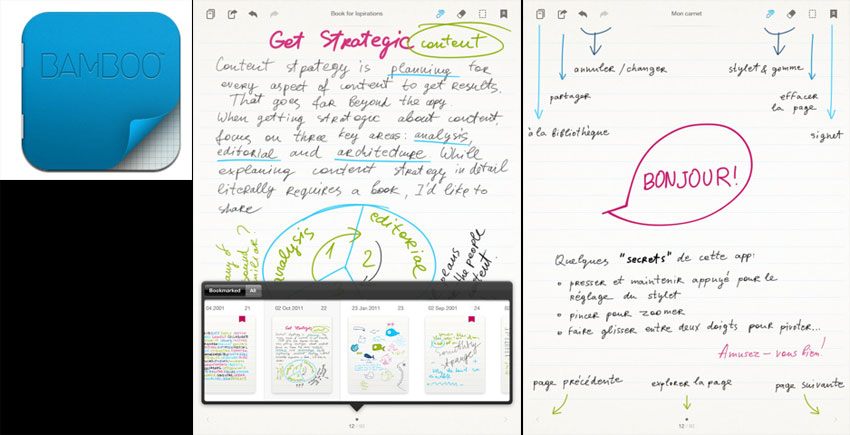 BAMBOO™
Book for Ispirations
Get Strategic content
Content strategy is planning for
every aspect of content to get results.
That goes far beyond the app.
When getting strategic about content,
focus on three key areas: analysis,
editorial and architecture. While
explaning content strategy in detail
literally requires a book, I'd like to
share
analysis
editorial
1
2
Bookmarked All
04 2001 21
02 Oct 2011 22
23 Jan 2011 23
02 Sep 2001 24
Get Strategic
12 / 60
Mon carnet
annuler / changer
stylet & gomme
partager
effacer
la page
à la bibliothèque
signet
BONJOUR!
Quelques "secrets" de cette app:
presser et maintenir appuyé pour le
réglage du stylet
pincer pour zoomer
faire glisser entre deux doigts pour pivoter...
Amusez-vous bien!
page précédente
explorer la page
page suivante